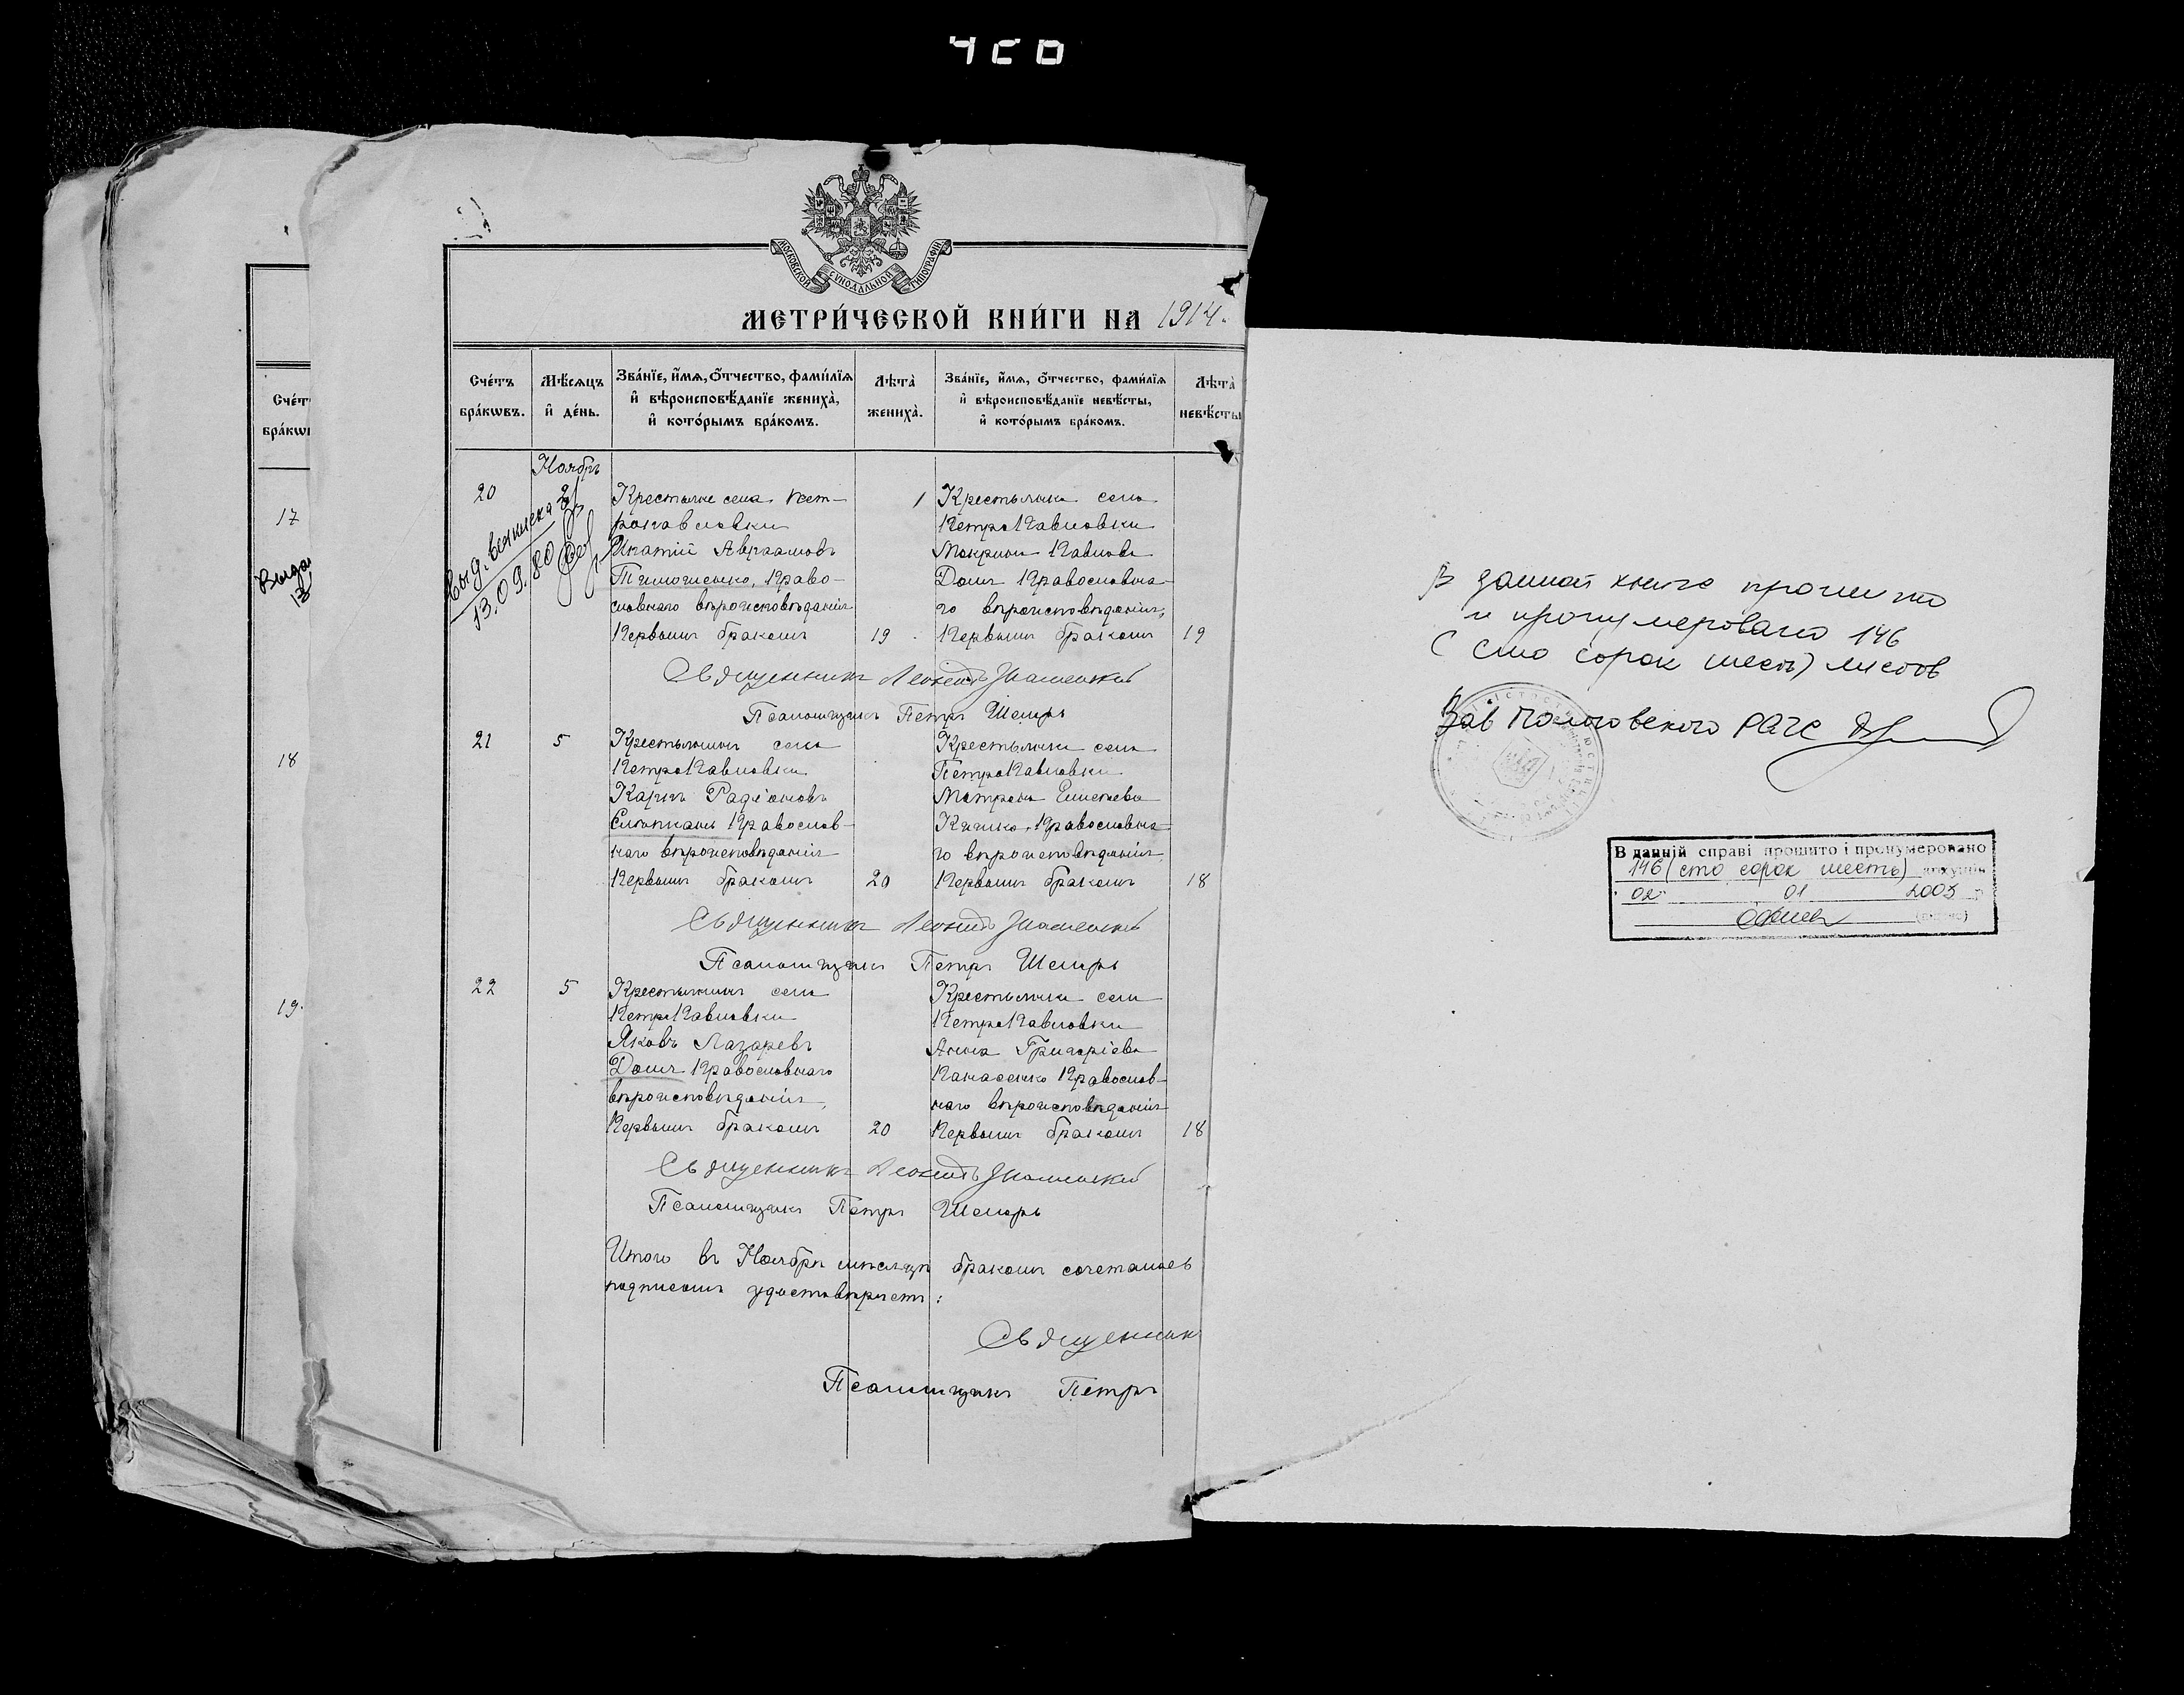 МОСКОВСКОЙ СѴНОДАЛЬНОЙ ТИПОГРАФІИ
МЕТРИ́ЧЕСКОЙ КНИ́ГИ НА 1914.
Сче́тъ бра́кѡвъ.
Мѣ́сѧцъ и҆ де́нь.
Зва́нїе, и҆́мѧ, ѻ҆́тчество, фами́лїѧ
и҆ вѣроисповѣ́данїе жениха̀,
и҆ кото́рымъ бра́комъ.
Лѣта̀ жениха̀.
Зва́нїе, и҆́мѧ, ѻ҆́тчество, фами́лїѧ
и҆ вѣроисповѣ́данїе невѣ́сты,
и҆ кото́рымъ бра́комъ.
Лѣта̀ невѣ́сты
17
18
19.
Ноябрь
20
выд. выписка
13.09.80
Крестьяне села Пет-
ропавловки
Игнатій Авраамовъ
Тимошенко, Право-
славнаго вѣроисповѣданія
Первымъ бракомъ 19
Крестьянка села
ПетроПавловки
Макрина Павлова
Дашъ Православна-
го вѣроисповѣданія,
Первымъ бракомъ 19
Священникъ Леонидъ Знаменскій
Псаломщикъ Петръ Шемръ
21 5
Крестьянинъ села
ПетроПавловки
Карпъ Радіоновъ
Православ-
наго вѣроисповѣданія
Первымъ бракомъ 20
Крестьянка села
ПетроПавловки
Матрона Елисеева
Кашко, Православна-
го вѣроисповѣданія,
Первымъ бракомъ 18
Священникъ Леонидъ Знаменскій
Псаломщикъ Петръ Шемръ
22 5
Крестьянинъ села
ПетроПавловки
Яковъ Лазаревъ
Дашъ Православнаго
вѣроисповѣданія,
Первымъ бракомъ 20
Крестьянка села
ПетроПавловки
Анна Григоріева
Панасенко Православ-
наго вѣроисповѣданія
Первымъ бракомъ 18
Священникъ Леонидъ Знаменскій
Псаломщикъ Петръ Шемръ
Итого въ Ноябрѣ мѣсяцѣ бракомъ сочетались
подписомъ удостовѣряетъ:
Священник
Псаломщикъ Петръ
В данной книге прошито
и пронумеровано 146
(сто сорок шесть) листов
Зав Пологовского РАГС
В данній справі прошито і пронумеровано
146 (сто сорок шесть) аркушів
02 01 2003 р
(підпис)